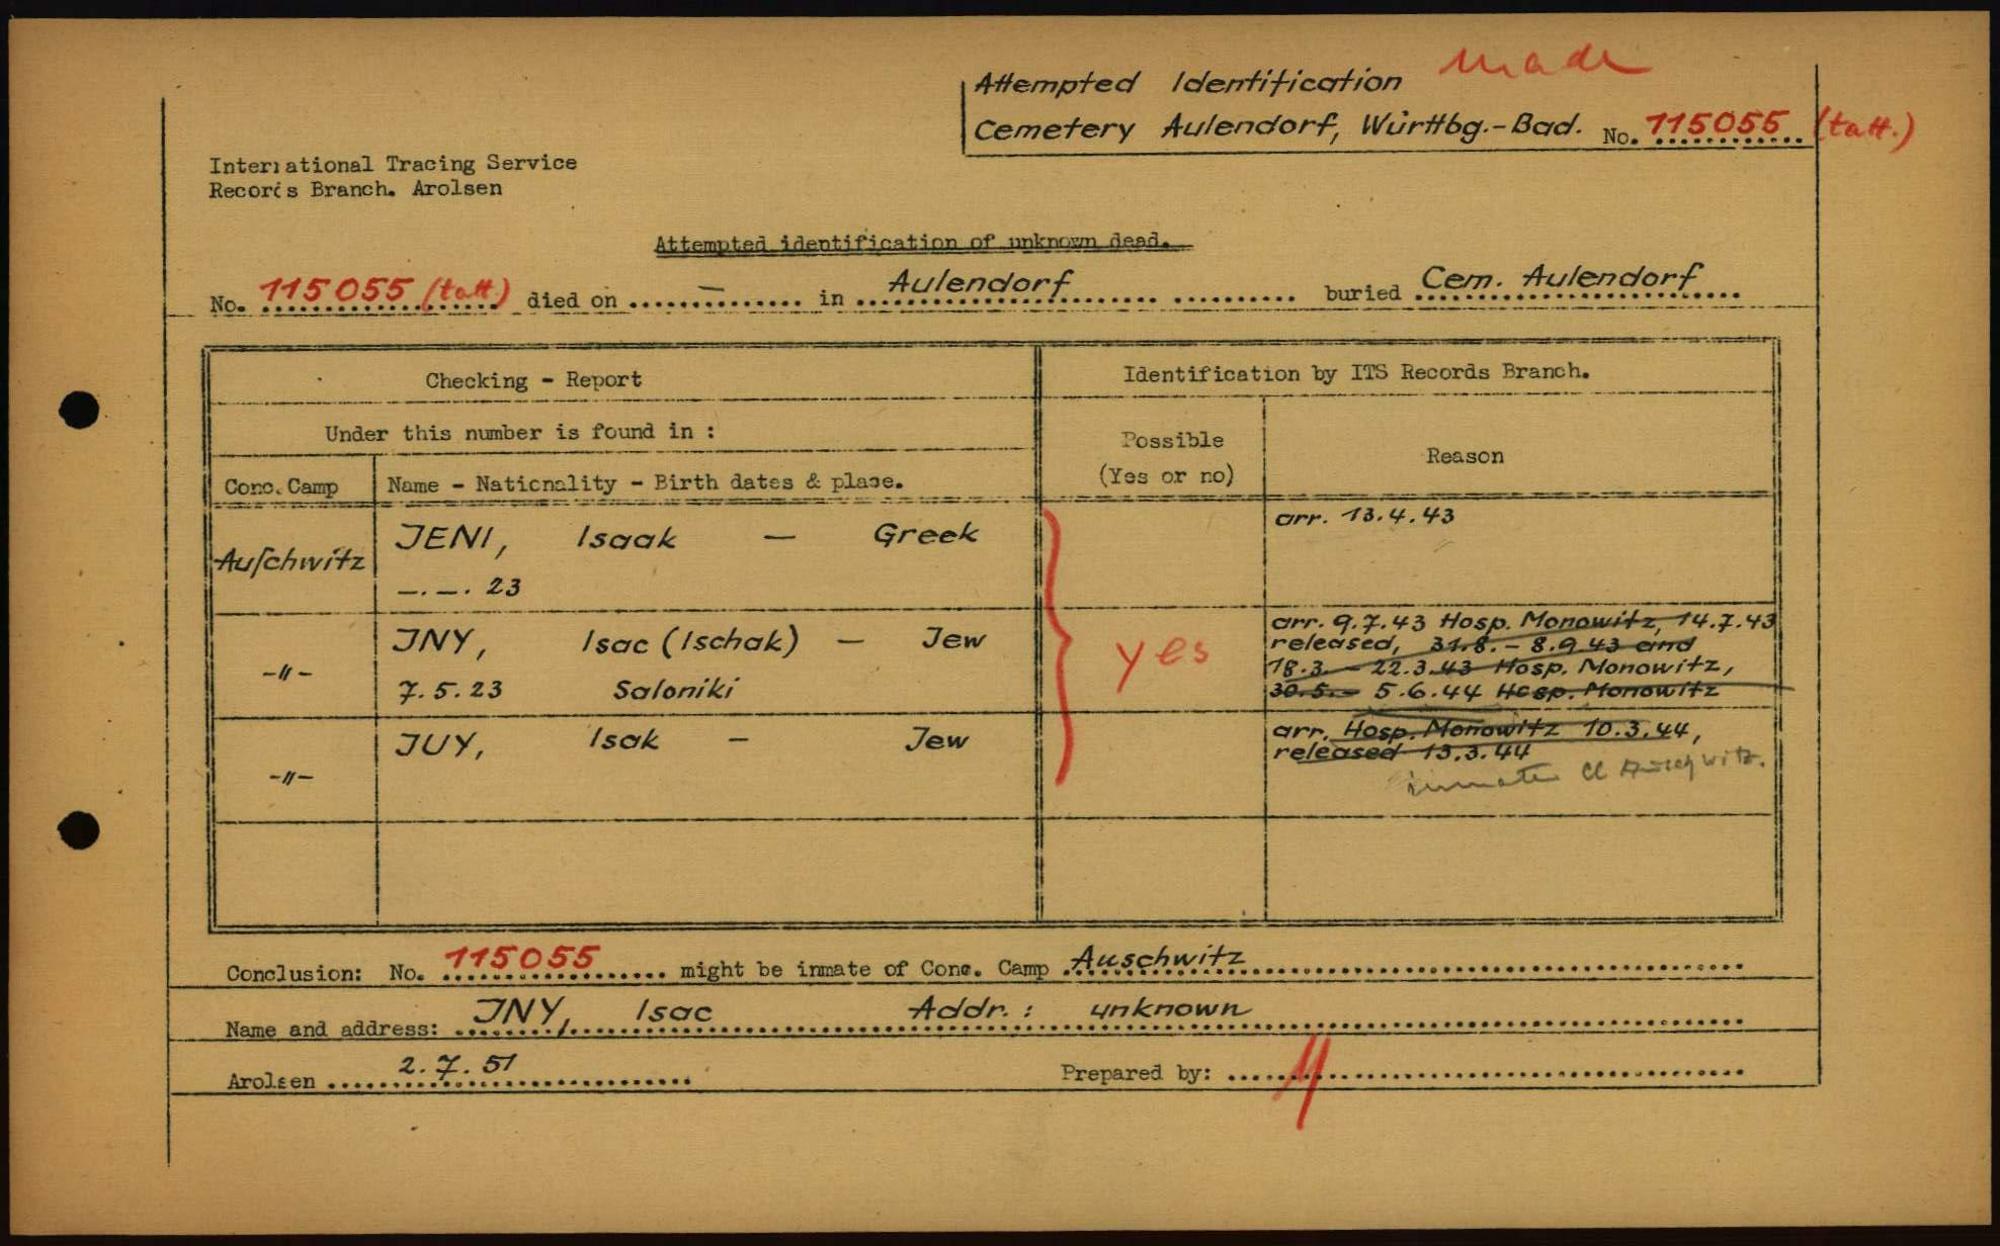 Attempted Identification made
Cemetery Aulendorf, Württbg.-Bad. No. 115055 (tatt.)
International Tracing Service
Records Branch. Arolsen
Attempted identification of unknown dead.
No. 115055 (tatt.) died on — in Aulendorf buried Cem. Aulendorf
Checking - Report
Identification by ITS Records Branch.
Under this number is found in :
Possible
(Yes or no)
Reason
Conc. Camp
Name - Nationality - Birth dates & place.
Auschwitz
JENI, Isaak — Greek
—.—. 23
arr. 13.4.43
-"-
JNY, Isac (Ischak) — Jew
7.5.23 Saloniki
yes
arr. 9.7.43 Hosp. Monowitz, 14.7.43
released, 31.8. - 8.9.43 and
18.3. - 22.3.43 Hosp. Monowitz,
30.5. - 5.6.44 Hosp. Monowitz
-"-
JUY, Isak — Jew
arr. Hosp. Monowitz 10.3.44,
released 13.3.44
inmate Cl Auschwitz.
Conclusion: No. 115055 might be inmate of Conc. Camp Auschwitz
Name and address: JNY, Isac Addr.: unknown
Arolsen 2.7.51
Prepared by: